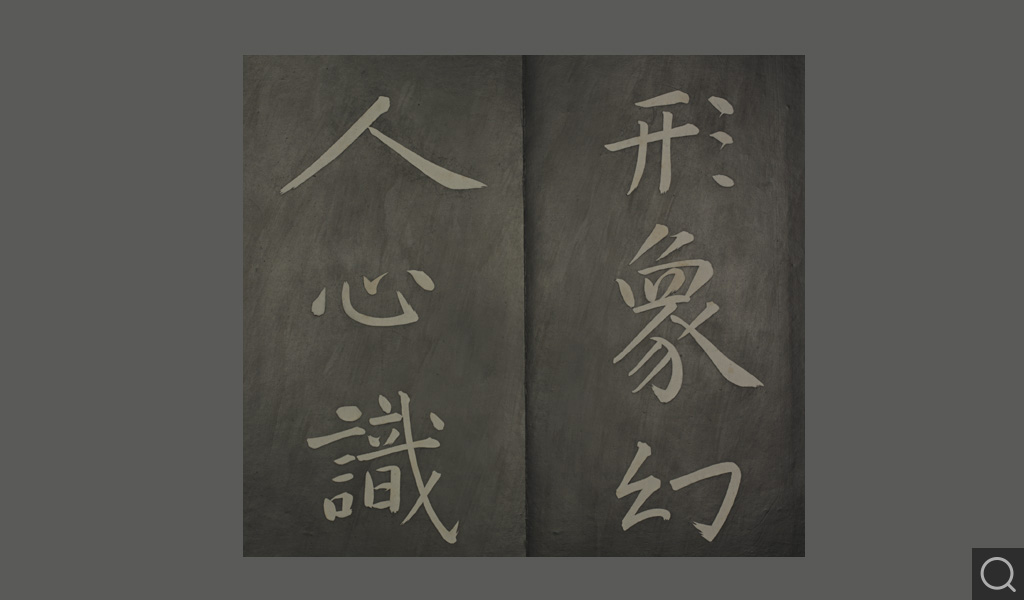 形象幻
人心識